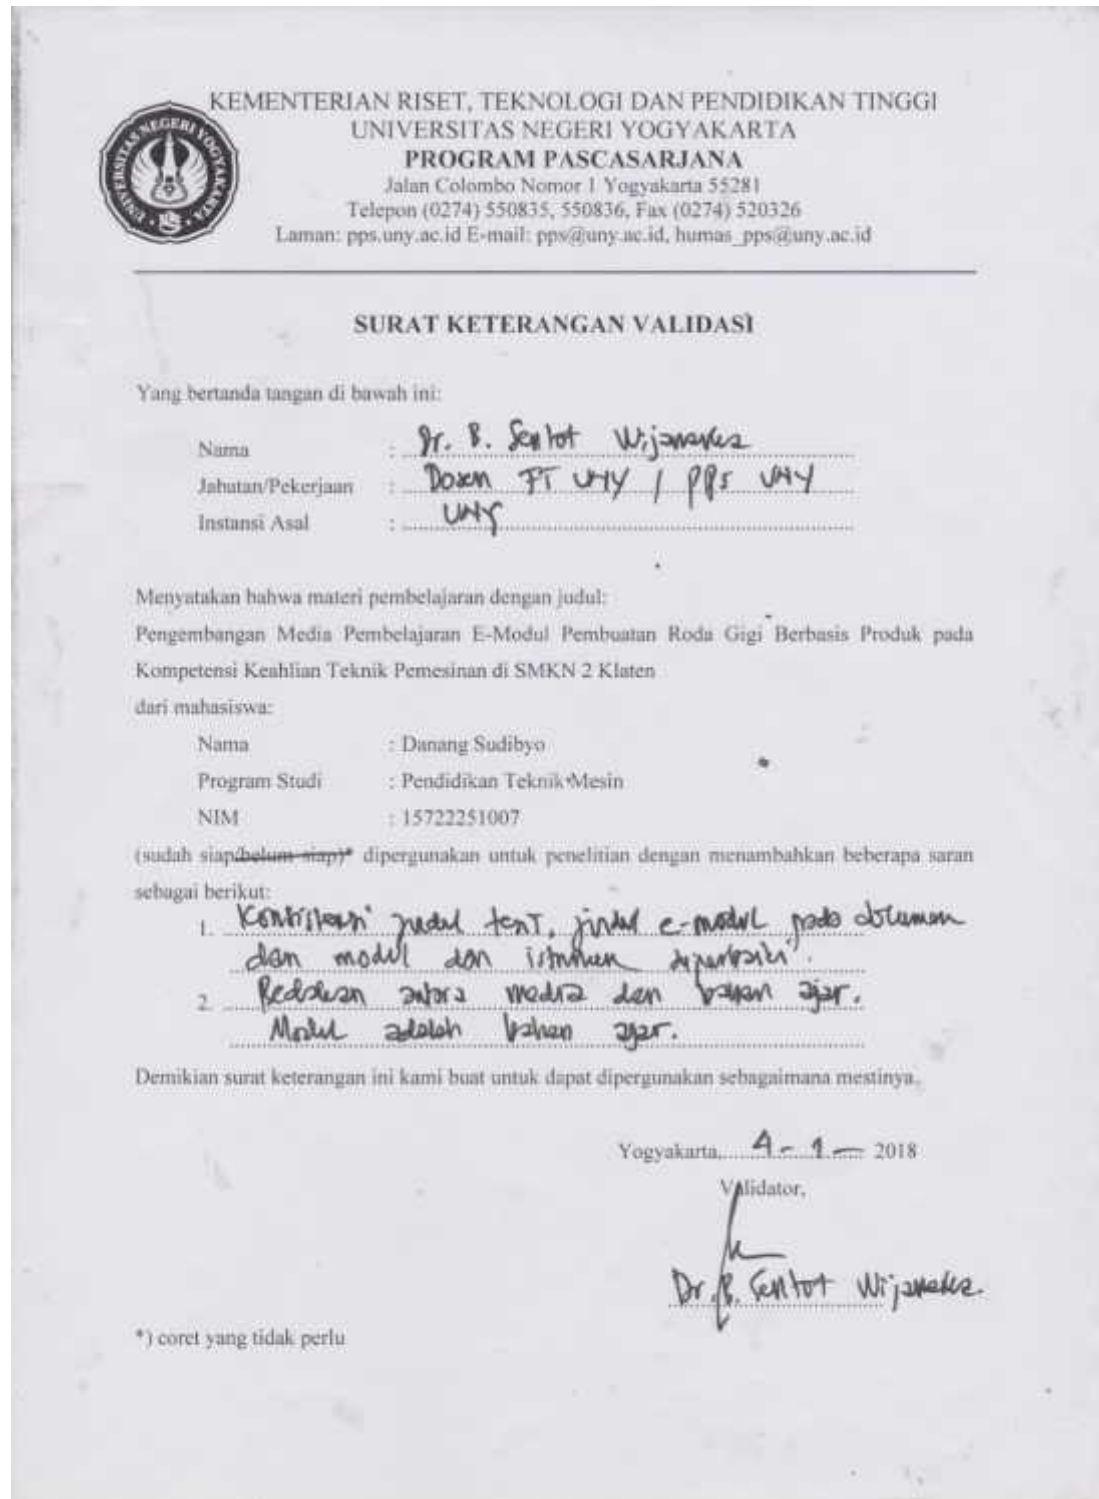 KEMENTERIAN RISET, TEKNOLOGI DAN PENDIDIKAN TINGGI
UNIVERSITAS NEGERI YOGYAKARTA
PROGRAM PASCASARJANA
Jalan Colombo Nomor 1 Yogyakarta 55281
Telepon (0274) 550835, 550836, Fax (0274) 520326
Laman: pps.uny.ac.id E-mail: pps@uny.ac.id, humas_pps@uny.ac.id
UNIVERSITAS NEGERI YOGYAKARTA
SURAT KETERANGAN VALIDASI
Yang bertanda tangan di bawah ini:
Nama : Dr. B. Sentot Wijanarka
Jabatan/Pekerjaan : Dosen FT UNY / PPs UNY
Instansi Asal : UNY
Menyatakan bahwa materi pembelajaran dengan judul:
Pengembangan Media Pembelajaran E-Modul Pembuatan Roda Gigi Berbasis Produk pada
Kompetensi Keahlian Teknik Pemesinan di SMKN 2 Klaten
dari mahasiswa:
Nama : Danang Sudibyo
Program Studi : Pendidikan Teknik Mesin
NIM : 15722251007
(sudah siap/belum siap)* dipergunakan untuk penelitian dengan menambahkan beberapa saran
sebagai berikut:
1. Konsistensi judul, judul e-modul pada dokumen
dan modul dan diperbaiki.
2. Bedakan antara media dan bahan ajar.
Modul adalah bahan ajar.
Demikian surat keterangan ini kami buat untuk dapat dipergunakan sebagaimana mestinya.
Yogyakarta, 4 - 1 - 2018
Validator,
Dr. B. Sentot Wijanarka.
*) coret yang tidak perlu